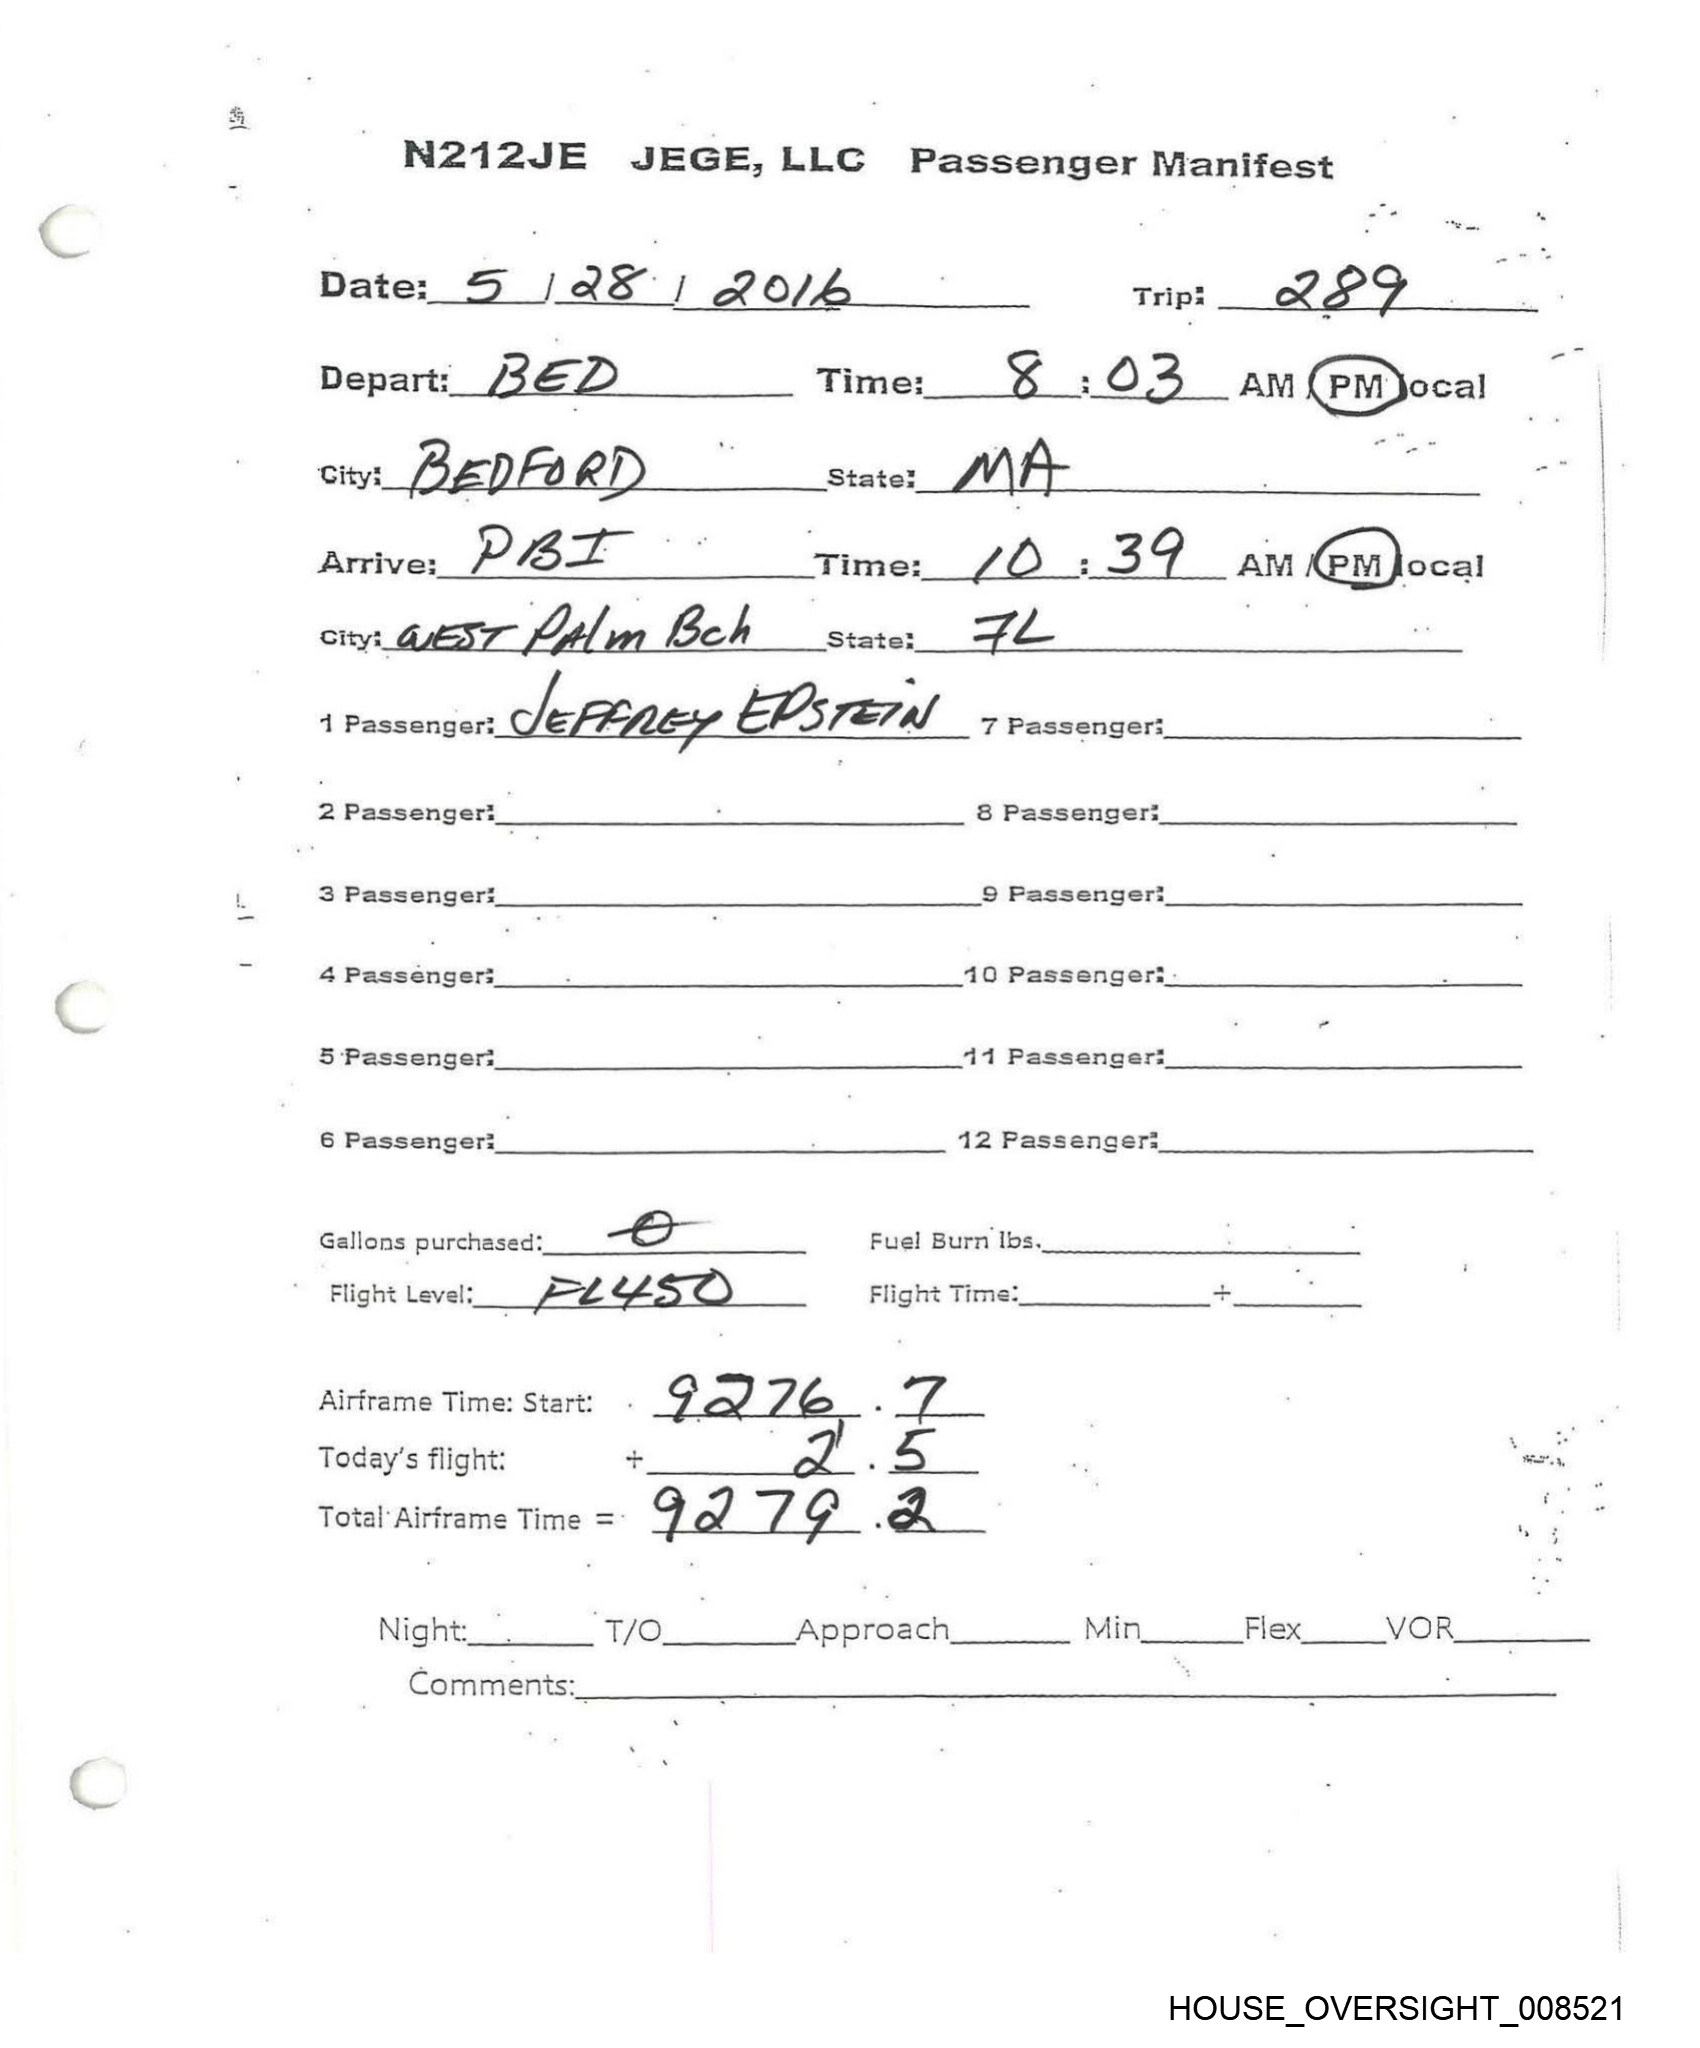 N212JE JEGE, LLC Passenger Manifest
Date: 5 / 28 / 2016 Trip: 289
Depart: BED Time: 8 : 03 AM / PM local
City: BEDFORD State: MA
Arrive: PBI Time: 10 : 39 AM / PM local
City: WEST PAlm Bch State: FL
1 Passenger: JEFFREY EPSTEIN 7 Passenger:
2 Passenger: 8 Passenger:
3 Passenger: 9 Passenger:
4 Passenger: 10 Passenger:
5 Passenger: 11 Passenger:
6 Passenger: 12 Passenger:
Gallons purchased: 0 Fuel Burn lbs.
Flight Level: FL450 Flight Time: +
Airframe Time: Start: 9276 . 7
Today's flight: + 2 . 5
Total Airframe Time = 9279 . 2
Night: T/O Approach Min Flex VOR
Comments:
HOUSE_OVERSIGHT_008521